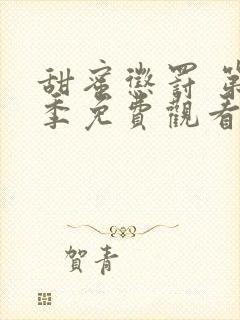 甜蜜懲罰 第
季免費觀看
賀青